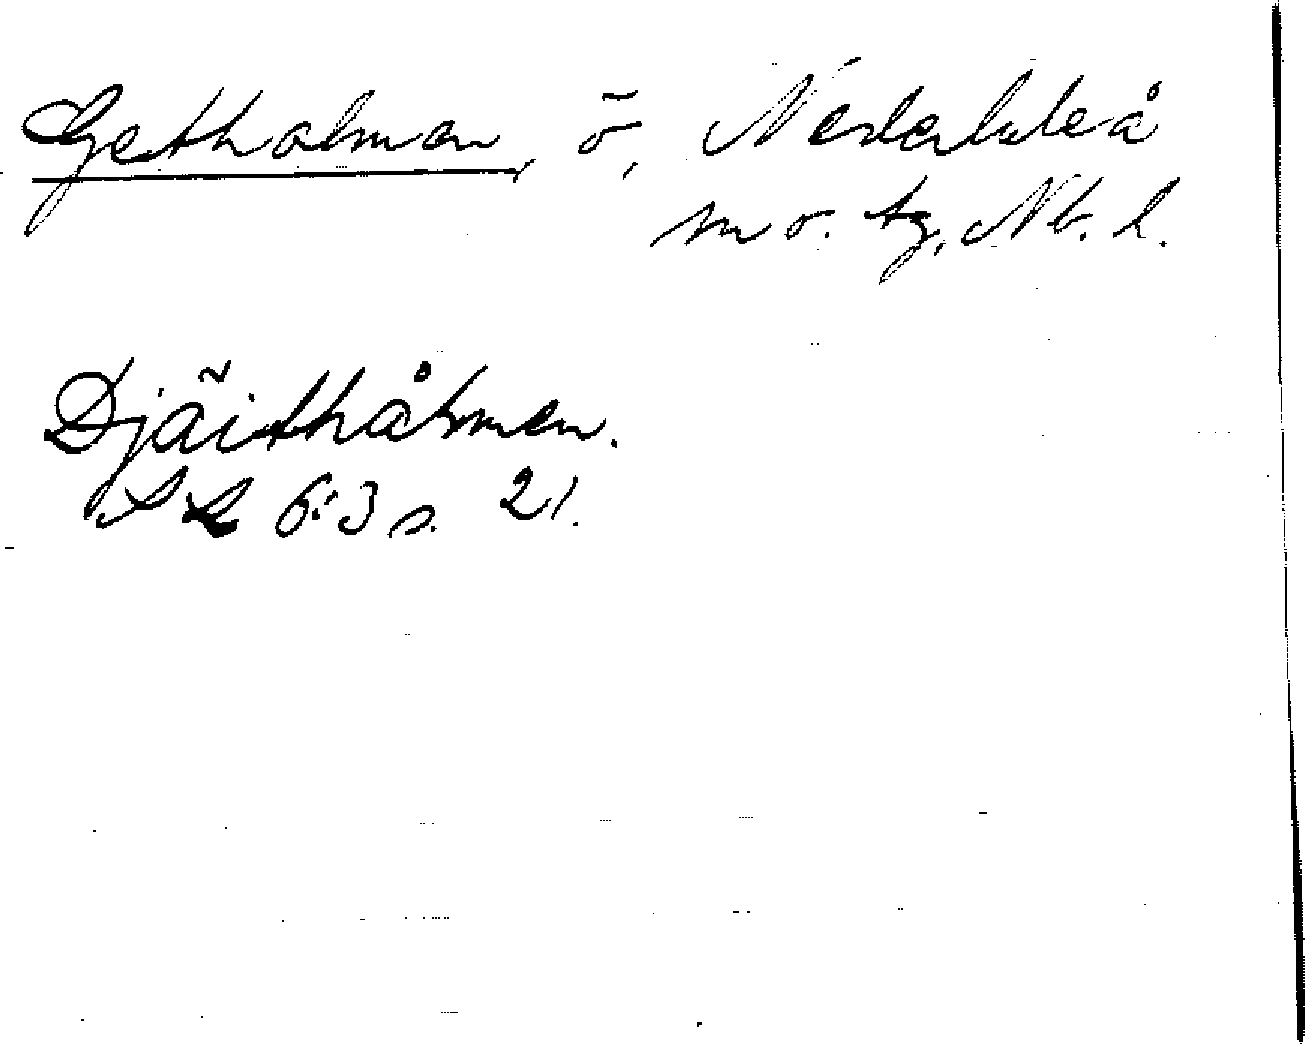 Getholmen, ö, Nederluleå
m o. tg, Nb. l.
Djäithålmen.
SL 6:3 s. 21.